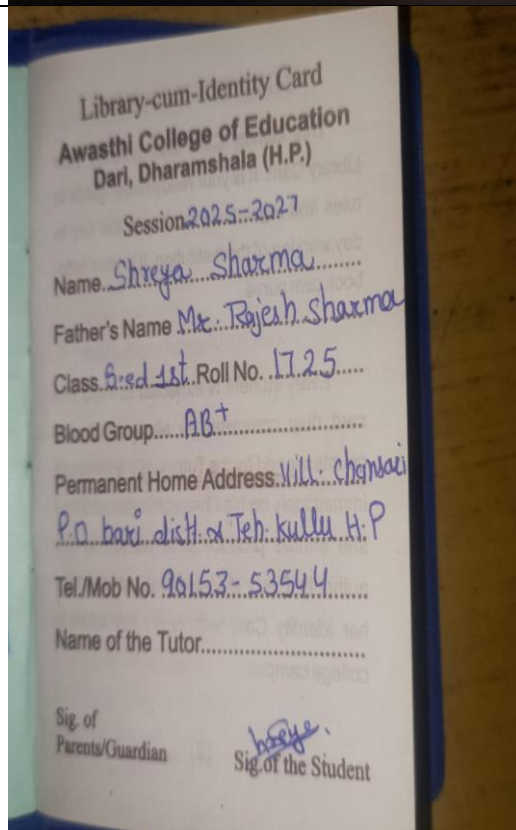 Library-cum-Identity Card
Awasthi College of Education
Dari, Dharamshala (H.P.)
Session 2025-2027
Name. Shreya Sharma
Father's Name Mr. Rajesh Sharma
Class. B.ed 1st Roll No. 1725
Blood Group AB+
Permanent Home Address. Vill. Chansari
P.O bari distt. & Teh. Kullu H.P
Tel./Mob No. 90153-53544
Name of the Tutor
Sig. of
Parents/Guardian
Sig.of the Student